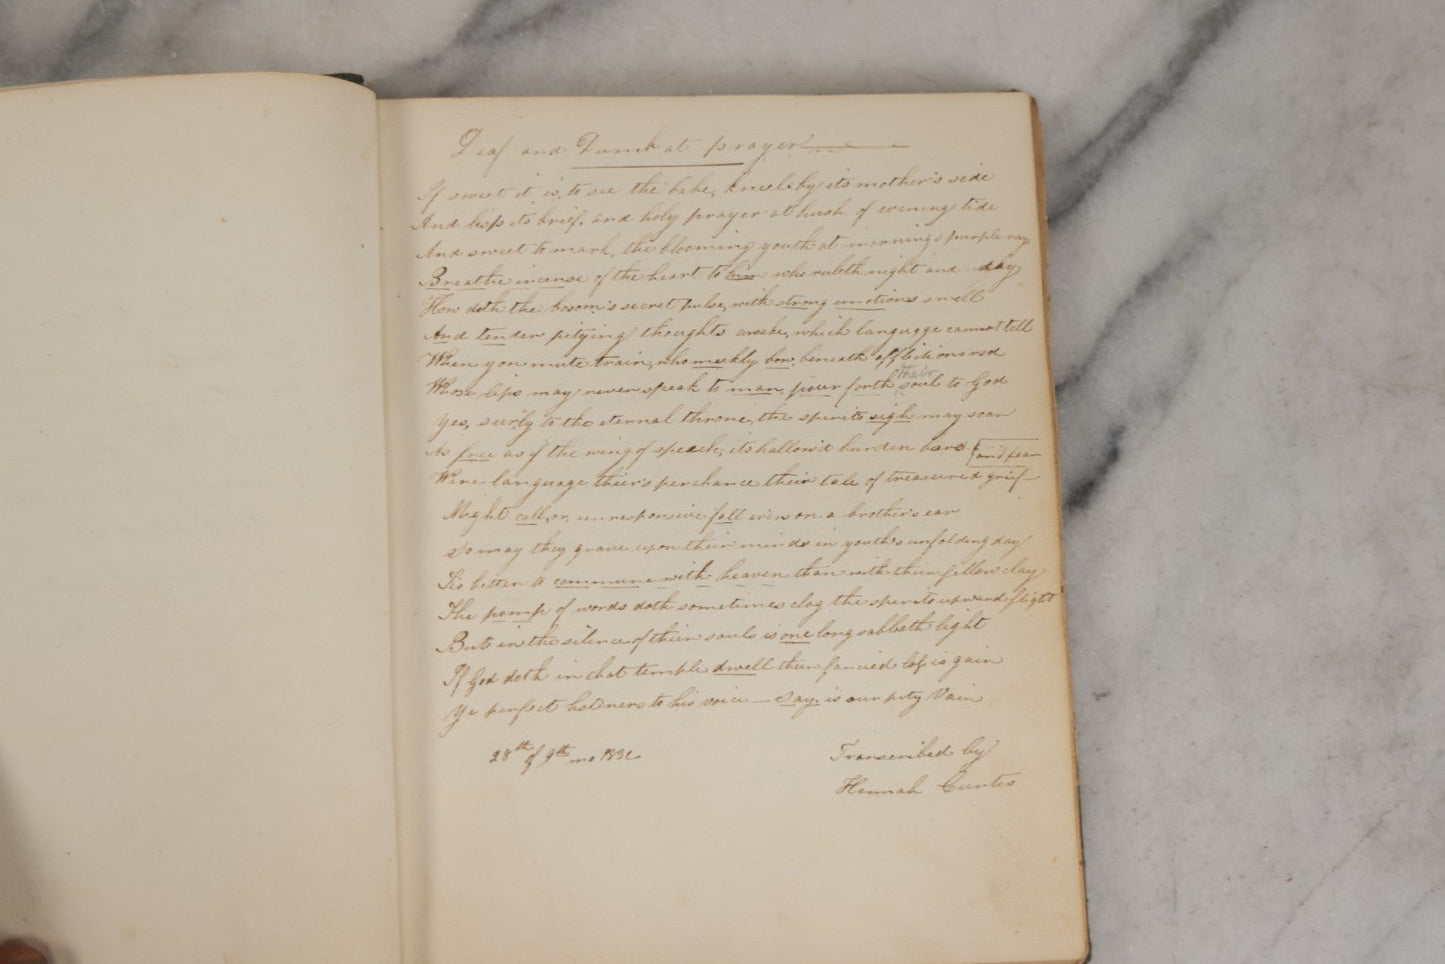 Deaf and Dumb at prayer
If sweet it is, to see the babe, kneel by its mother's side
And lisp its brief, and holy prayer at hush of evening tide
And sweet to mark, the blooming youth at morning's purple ray
Breathe incense of the heart to him who ruleth night and day
How doth the bosom's secret pulse, with strong emotions swell
And tender pitying thoughts awake, which languagge cannot tell
When yon mute train, who meekly bow beneath afflictions rod
Whose lips may never speak to man, pour forth their soul to God
Yes, surly to the eternal throne, the spirits sigh may soar
As free as if the wing of speech, its hallow'd burden bore
Were language their's perchance their tale of treasured grief and fear
Might call, or unresponsive fall even on a brother's ear
So may they grave upon their minds in youth's unfolding day
Tis better to commune with heaven than with their fellow clay
The pomp of words doth sometimes clog the spirits upward flight
But in the silence of their souls is one long sabbath light
If God doth in that temple dwell their fancied loss is gain
Ye perfect listners to his voice — say, is our pity Vain
28th of 9th mo 1832
Transcribed by
Hannah Curtis